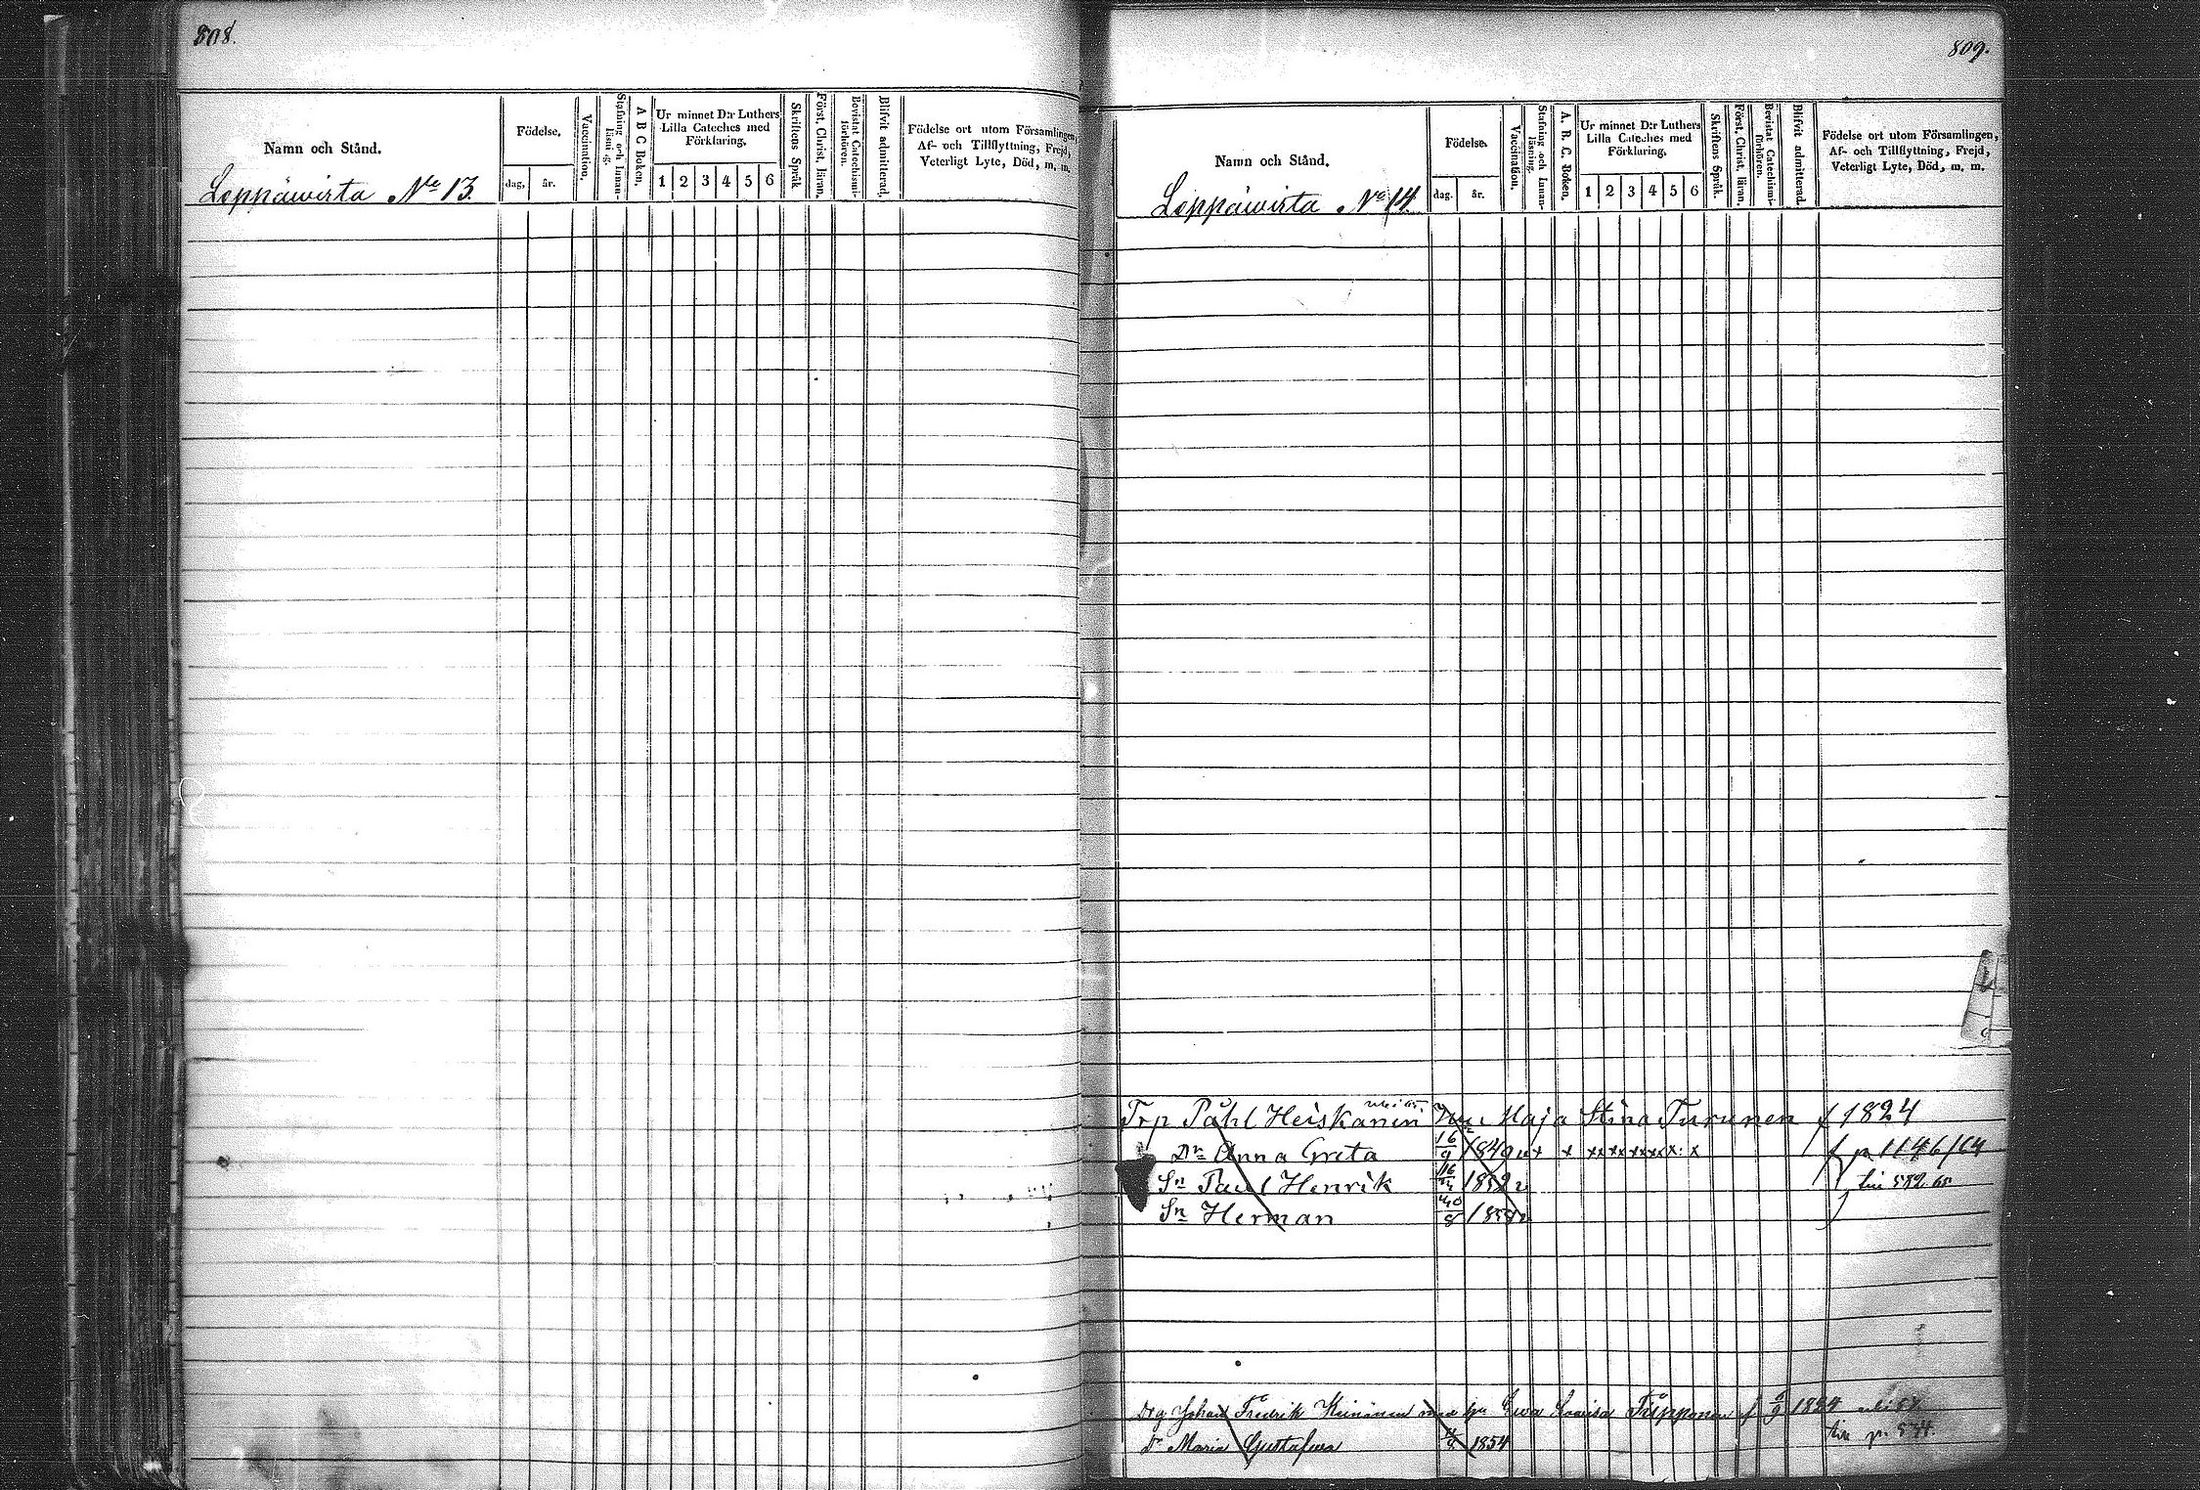 808.
Namn och Stånd.
Födelse,
dag,
år.
Vaccination,
Stafning och Innan-
läsning.
A B C Boken,
Ur minnet D:r Luthers
Lilla Cateches med
Förklaring,
1 2 3 4 5 6
Skriftens Språk
Först. Christ. läran,
Bevistat Catechismi-
förhören.
Blifvit admitterad,
Födelse ort utom Församlingen,
Af- och Tillflyttning, Frejd,
Veterligt Lyte, Död, m. m.
Leppäwirta No 13.
809.
Namn och Stånd.
Födelse.
dag.
år.
Vaccination,
Stafning och Innan-
läsning.
A. B. C. Boken,
Ur minnet D:r Luthers
Lilla Cateches med
Förklaring,
1 2 3 4 5 6
Skriftens Språk.
Först. Christ. läran,
Bevistat Catechismi-
förhören.
Blifvit admitterad.
Födelse ort utom Församlingen,
Af- och Tillflyttning, Frejd,
Veterligt Lyte, Död, m. m.
Leppäwirta No 14.
Trp Påhl Heiskanen Maja Stina Turunen f 1824
Dr Anna Greta 16/9 1849 x x xxxxxxx: x p 1146/64
Sn Paul Henrik 1852 582 65
Sn Herman 1858
Drg Johan Fredrik Keinänen Ewa Lovisa f 1824
Dr Maria Gustafwa 1854 p. 574.